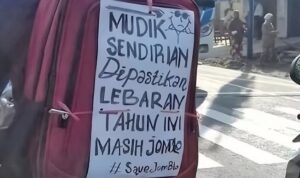 MUDIK
SENDIRIAN
Dipastikan
LEBARAN
TAHUN INI
MASIH JOMBLO
#SaveJomblo